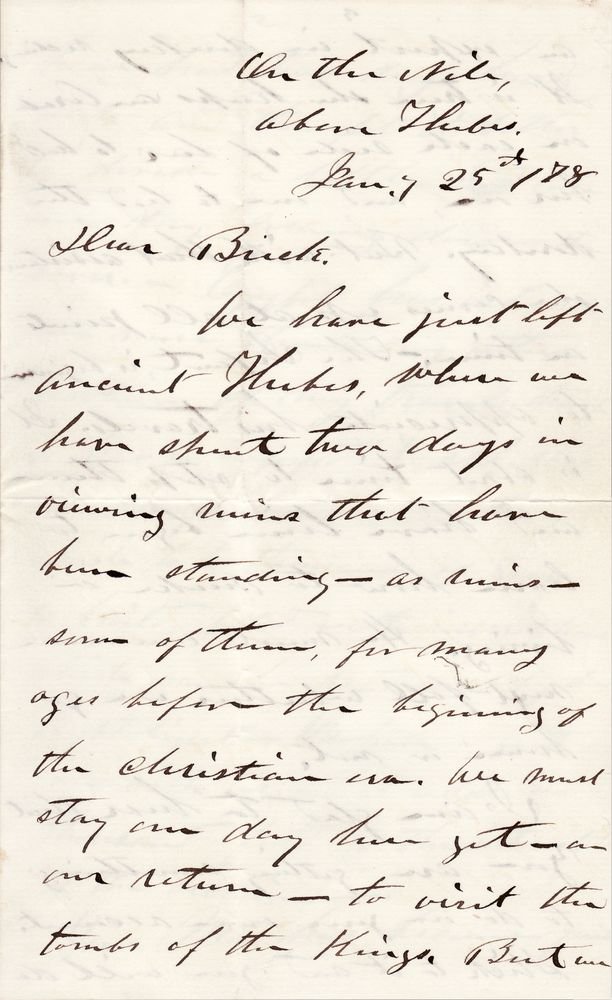 On the Nile,
Above Thebes.
Jan.y 25th /78
Dear Brick.
We have just left
ancient Thebes, where we
have spent two days in
viewing ruins that have
been standing — as ruins —
some of them, for many
ages before the begining of
the Christian era. We must
stay one day here yet — on
our return — to visit the
tombs of the Kings. But we